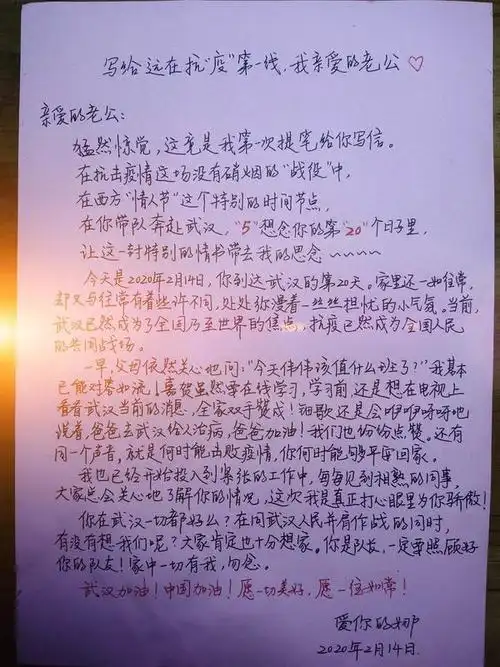 写给远在抗“疫”第一线,我亲爱的老公♡
亲爱的老公:
猛然惊觉,这竟是我第一次提笔给你写信。
在抗击疫情这场没有硝烟的“战役”中,
在西方“情人节”这个特别的时间节点,
在你带队奔赴武汉,“5”想念你的第“20”个日子里,
让这一封特别的情书带去我的思念~~~~
今天是2020年2月14日,你到达武汉的第20天。家里还一如往常,
却又与往常有着些许不同,处处弥漫着一丝丝担忧的小气氛。当前,
武汉已然成为了全国乃至世界的焦点,抗疫已然成为全国人民
的共同战场。
一早,父母依然关心地问:“今天伟伟该值什么班了?”我基本
已能对答如流!嘉贺虽然要在线学习,学习前,还是想在电视上
看看武汉当前的消息,全家双手赞成!细歌还是会咿咿呀呀地
说着,爸爸去武汉给人治病,爸爸加油!我们也纷纷点赞。还有
同一个声音,就是何时能击败疫情,你何时能够早日回家。
我也已经开始投入到紧张的工作中,每每见到相熟的同事,
大家总会关心地了解你的情况,这次我是真正打心眼里为你骄傲!
你在武汉一切都好么?在同武汉人民并肩作战的同时,
有没有想我们呢?大家肯定也十分想家。你是队长,一定要照顾好
你的队友!家中一切有我,勿念。
武汉加油!中国加油!愿一切美好,愿一往如常!
爱你的娜
2020年2月14日.